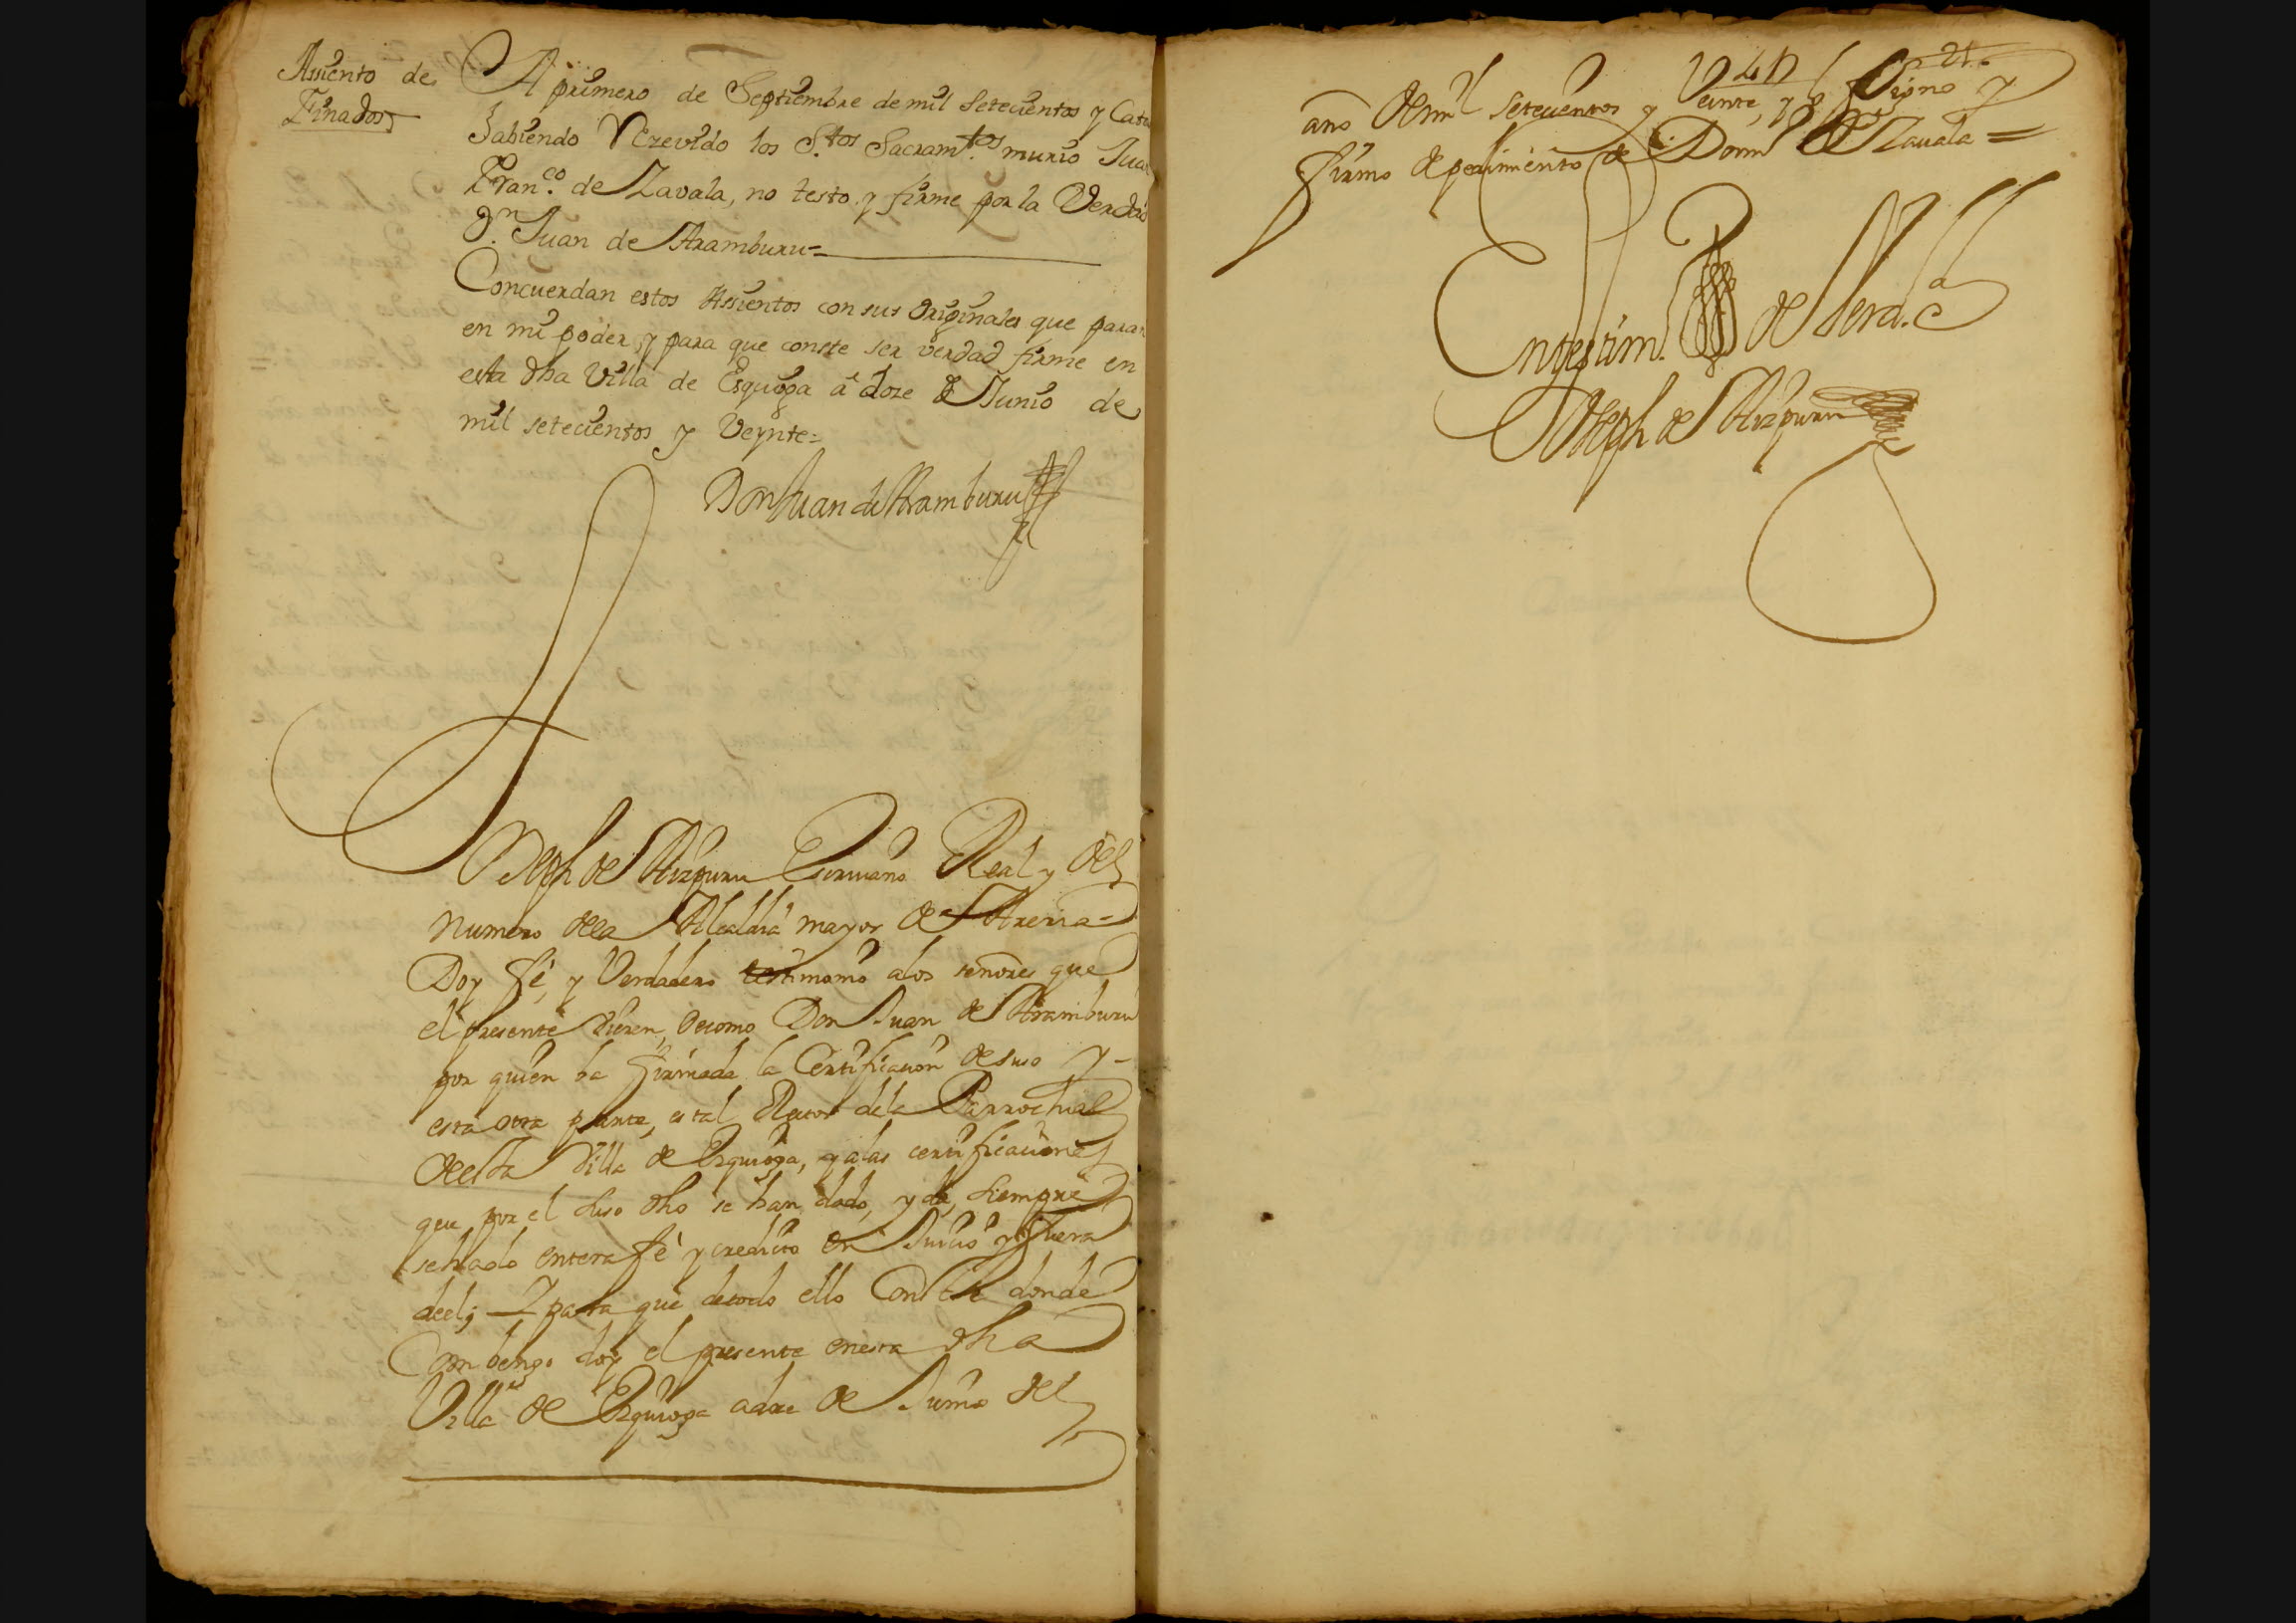 Assiento de
Finados
A primero de Septiembre de mil setecientos y Cato
habiendo Rezevido los S.tos Sacram.tos murio Juan
Fran.co de Zavala, no testo, y firme por la Verdad
Dn. Juan de Aramburu=
Concuerdan estos Assientos con sus Originales que paran
en mi poder, y para que conste ser verdad firme en
esta dha Villa de Esquioga â doze de Junio de
mil setecientos y Veynte=
Don Juan de Aramburu
Joseph de Aizpuru Escriuano Real y del
numero dela Alcaldia mayor de Areria=
Doy fê, y Verdadero testimonio alos señores que
el presente vieren, decomo Don Juan de Aramburu
por quien ba firmada la Certificacion desuso y-
esta otra parte, es tal Rector dela Parrochial
desta Villa de Ezquioga, y alas certificaciones
que por el suso dho se han dado, y da, siempre
sehadado entera fê y credito en Juicio y fuera
deel; Y para que detodo ello Conste donde
Combenga doy el presente enesta dha
Villa de Ezquioga adoze de Junio del
21.
año de mil setecientos y Veinte, y Signo y
firmo de pedimiento de Domº de Zauala=
En testim.º de Verd.ª
Joseph de Aizpuru